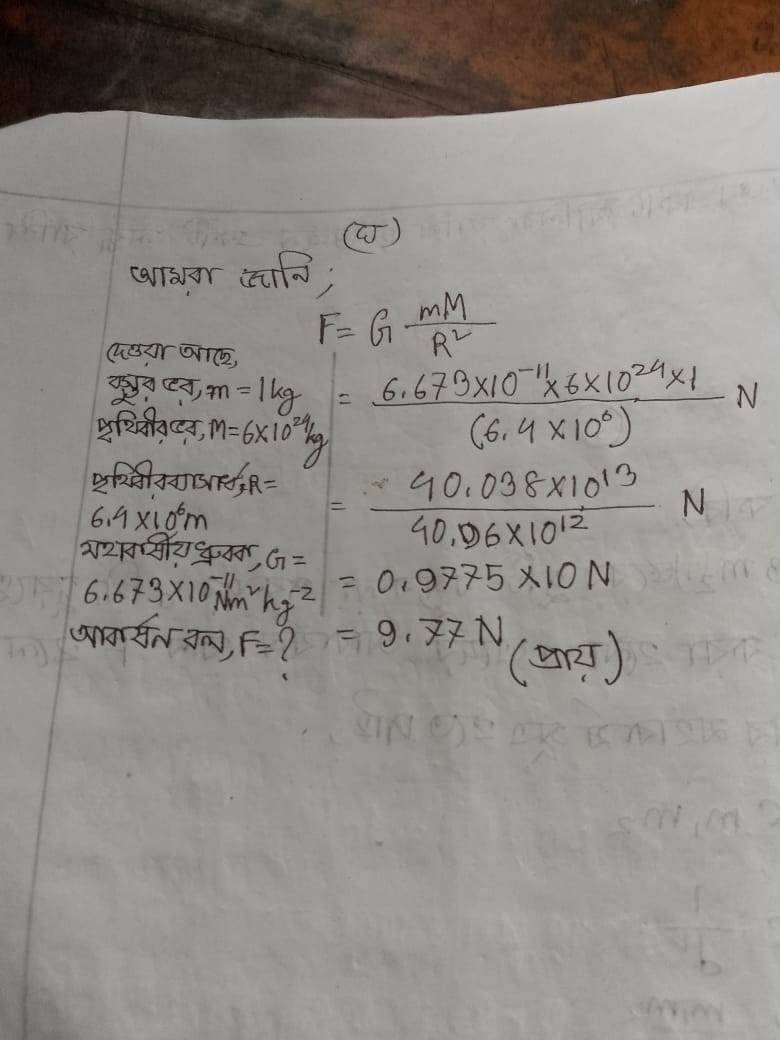 (ঘ)
আমরা জানি;
F = G mM / R²
দেওয়া আছে,
বস্তুর ভর, m = 1kg
পৃথিবীর ভর, M = 6×10²⁴kg
পৃথিবীর ব্যাসার্ধ, R =
6.4×10⁶m
মহাকর্ষীয় ধ্রুবক, G =
6.673×10⁻¹¹Nm²kg⁻²
আকর্ষন বল, F = ?
= 6.673×10⁻¹¹×6×10²⁴×1 / (6.4×10⁶) N
= 40.038×10¹³ / 40.96×10¹² N
= 0.9775×10 N
= 9.77 N (প্রায়)